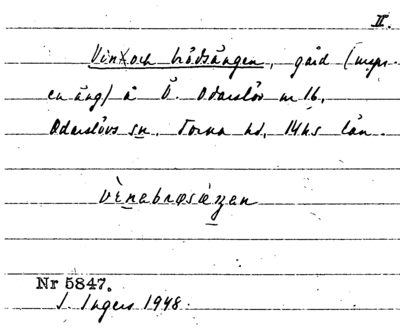 II.
Vin och brödsängen, gård (urspr.
en äng) å Ö. Odarslöv nr 16,
Odarslövs sn. Torna hd, Mhs län.
vìnabrøsæŋən
Nr 5847.
I. Ingers 1948.